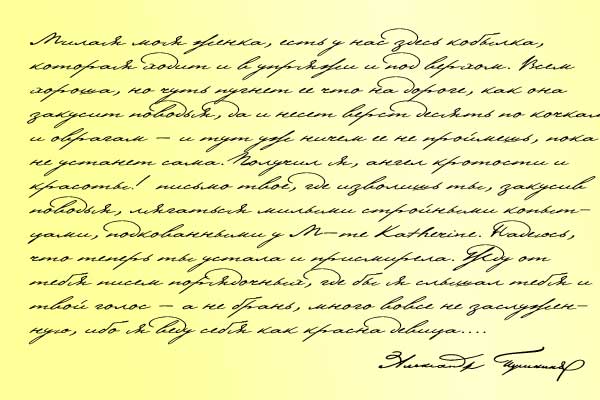 Милая моя женка, есть у нас здесь кобылка,
которая ходит и в упряжи и под верхом. Всем
хороша, но чуть пугнет ее что на дороге, как она
закусит поводья, да и несет верст десять по кочкам
и оврагам — и тут уж ничем ее не проймешь, пока
не устанет сама. Получил я, ангел кротости и
красоты! письмо твое, где изволишь ты, закусив
поводья, лягаться милыми стройными копыт-
цами, подкованными у М-me Katherine. Надеюсь,
что теперь ты устала и присмирела. Жду от
тебя писем порядочных, где бы я слышал тебя и
твой голос — а не брань, много вовсе не заслужен-
ную, ибо я веду себя как красна девица....
Александр Пушкинъ